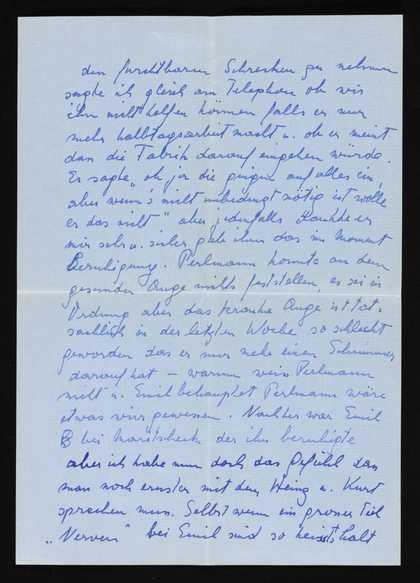 den furchtbaren Schrecken zu nehmen
sagte ich gleich am Telephon ob wir
ihm nicht helfen können falls er nur
mehr halbtagsarbeit macht u. ob er meint
dan die Fabrik darauf eingehen würde.
Er sagte „oh ja die gingen auf alles ein,
aber wenn's nicht unbedingt nötig ist wolle
er das nicht" aber jedenfalls dankte er
mir sehr u. sicher gab ihm das im Moment
Beruhigung. Perlmann konnte an dem
gesunden Auge nichts feststellen, es sei in
Ordnung aber das kranke Auge ist tat-
sächlich in der letzten Woche so schlecht
geworden das er nur mehr einen Schimmer
darauf hat – warum weis Perlmann
nicht u. Emil behauptet Perlmann wäre
etwas wirr gewesen. Nachher war Emil
bei der ihn beruhigte
aber ich habe nun doch das Gefühl dan
man noch ernster mit dem Heinz u. Kurt
sprechen muss. Selbst wenn ein grosser Teil
„Nerven" bei Emil sind so